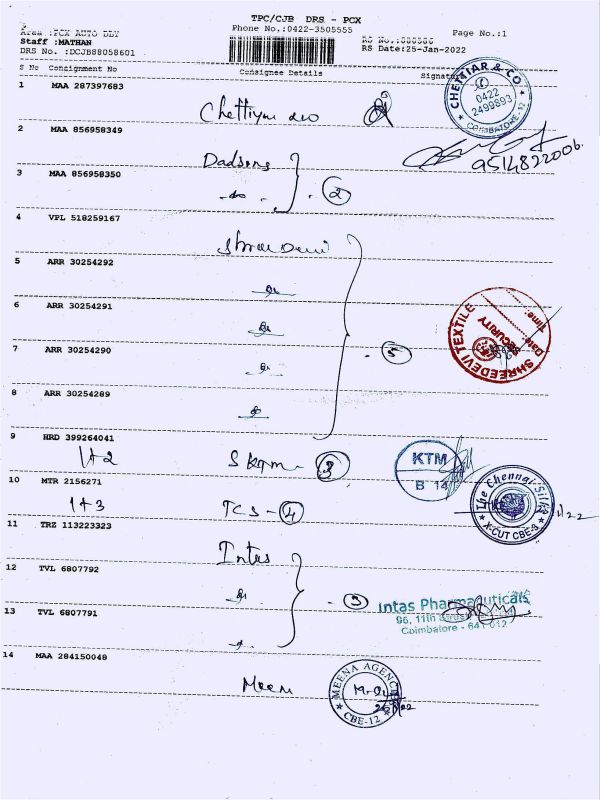 TPC/CJB DRS - PCX
Phone No.:0422-3505555
Area :PCX AUTO DLY
Page No.:1
Staff :MATHAN
RS Date:25-Jan-2022
DRS No. :DCJB88058601
S No Consignment No Consignee Details Signature
1 MAA 287397683
CHETTIAR & CO.
0422
2499893
COIMBATORE-12
2 MAA 856958349
Dadsons
9514822006
3 MAA 856958350
-do- 2
4 VPL 518259167
5 ARR 30254292
6 ARR 30254291
SHREEDEVI TEXTILE
SECURITY
Date
Time:
7 ARR 30254290
5
8 ARR 30254289
9 HRD 399264041
1+2 3
KTM
B 14
10 MTR 2156271
1+3 TCS - 4
The Chennai Silks
X-CUT CBE-9
11 TRZ 113223323
Intas
12 TVL 6807792
3
Intas Pharmaceuticals
Coimbatore - 641 012
13 TVL 6807791
14 MAA 284150048
Meena
MEENA AGENCI
CBE-12